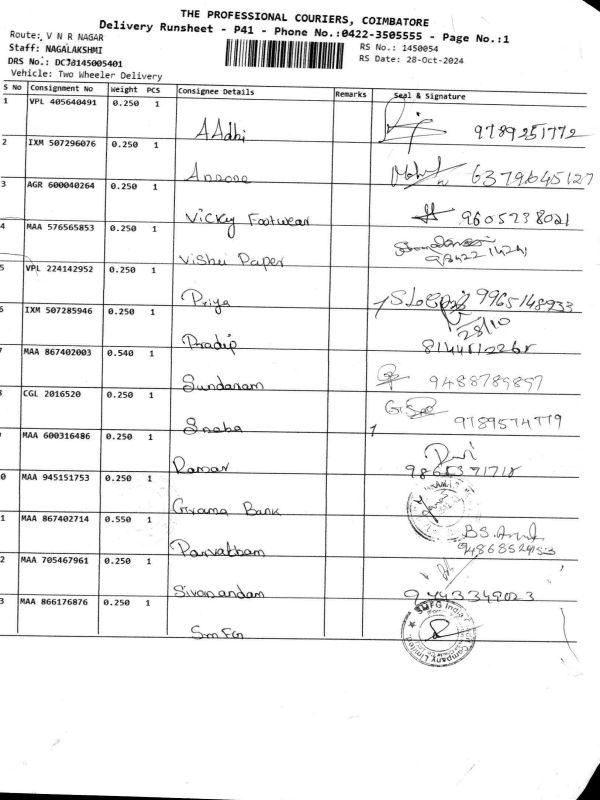 THE PROFESSIONAL COURIERS, COIMBATORE
Delivery Runsheet - P41 - Phone No.:0422-3505555 - Page No.:1
Route: V N R NAGAR
Staff: NAGALAKSHMI
RS No.: 1450054
DRS No.: DCJ8145005401
RS Date: 28-Oct-2024
Vehicle: Two Wheeler Delivery
S No Consignment No Weight PCS Consignee Details Remarks Seal & Signature
1 VPL 405640491 0.250 1
AAdhi 9789251772
2 IXM 507296076 0.250 1
6379645127
3 AGR 600040264 0.250 1
Vicky Footwear 9605238021
4 MAA 576565853 0.250 1
Vishu Paper
5 VPL 224142952 0.250 1
Priya 9965148933
28/10
6 IXM 507285946 0.250 1
Pradip
7 MAA 867402003 0.540 1
Sundaram 9488789897
8 CGL 2016520 0.250 1
Sneha 9789574779
9 MAA 600316486 0.250 1
Raman
0 MAA 945151753 0.250 1
Grama Bank
1 MAA 867402714 0.550 1
Parvatham
2 MAA 705467961 0.250 1
Sivanandam 9443349023
3 MAA 866176876 0.250 1
SMFG
SMFG India
Company Limited